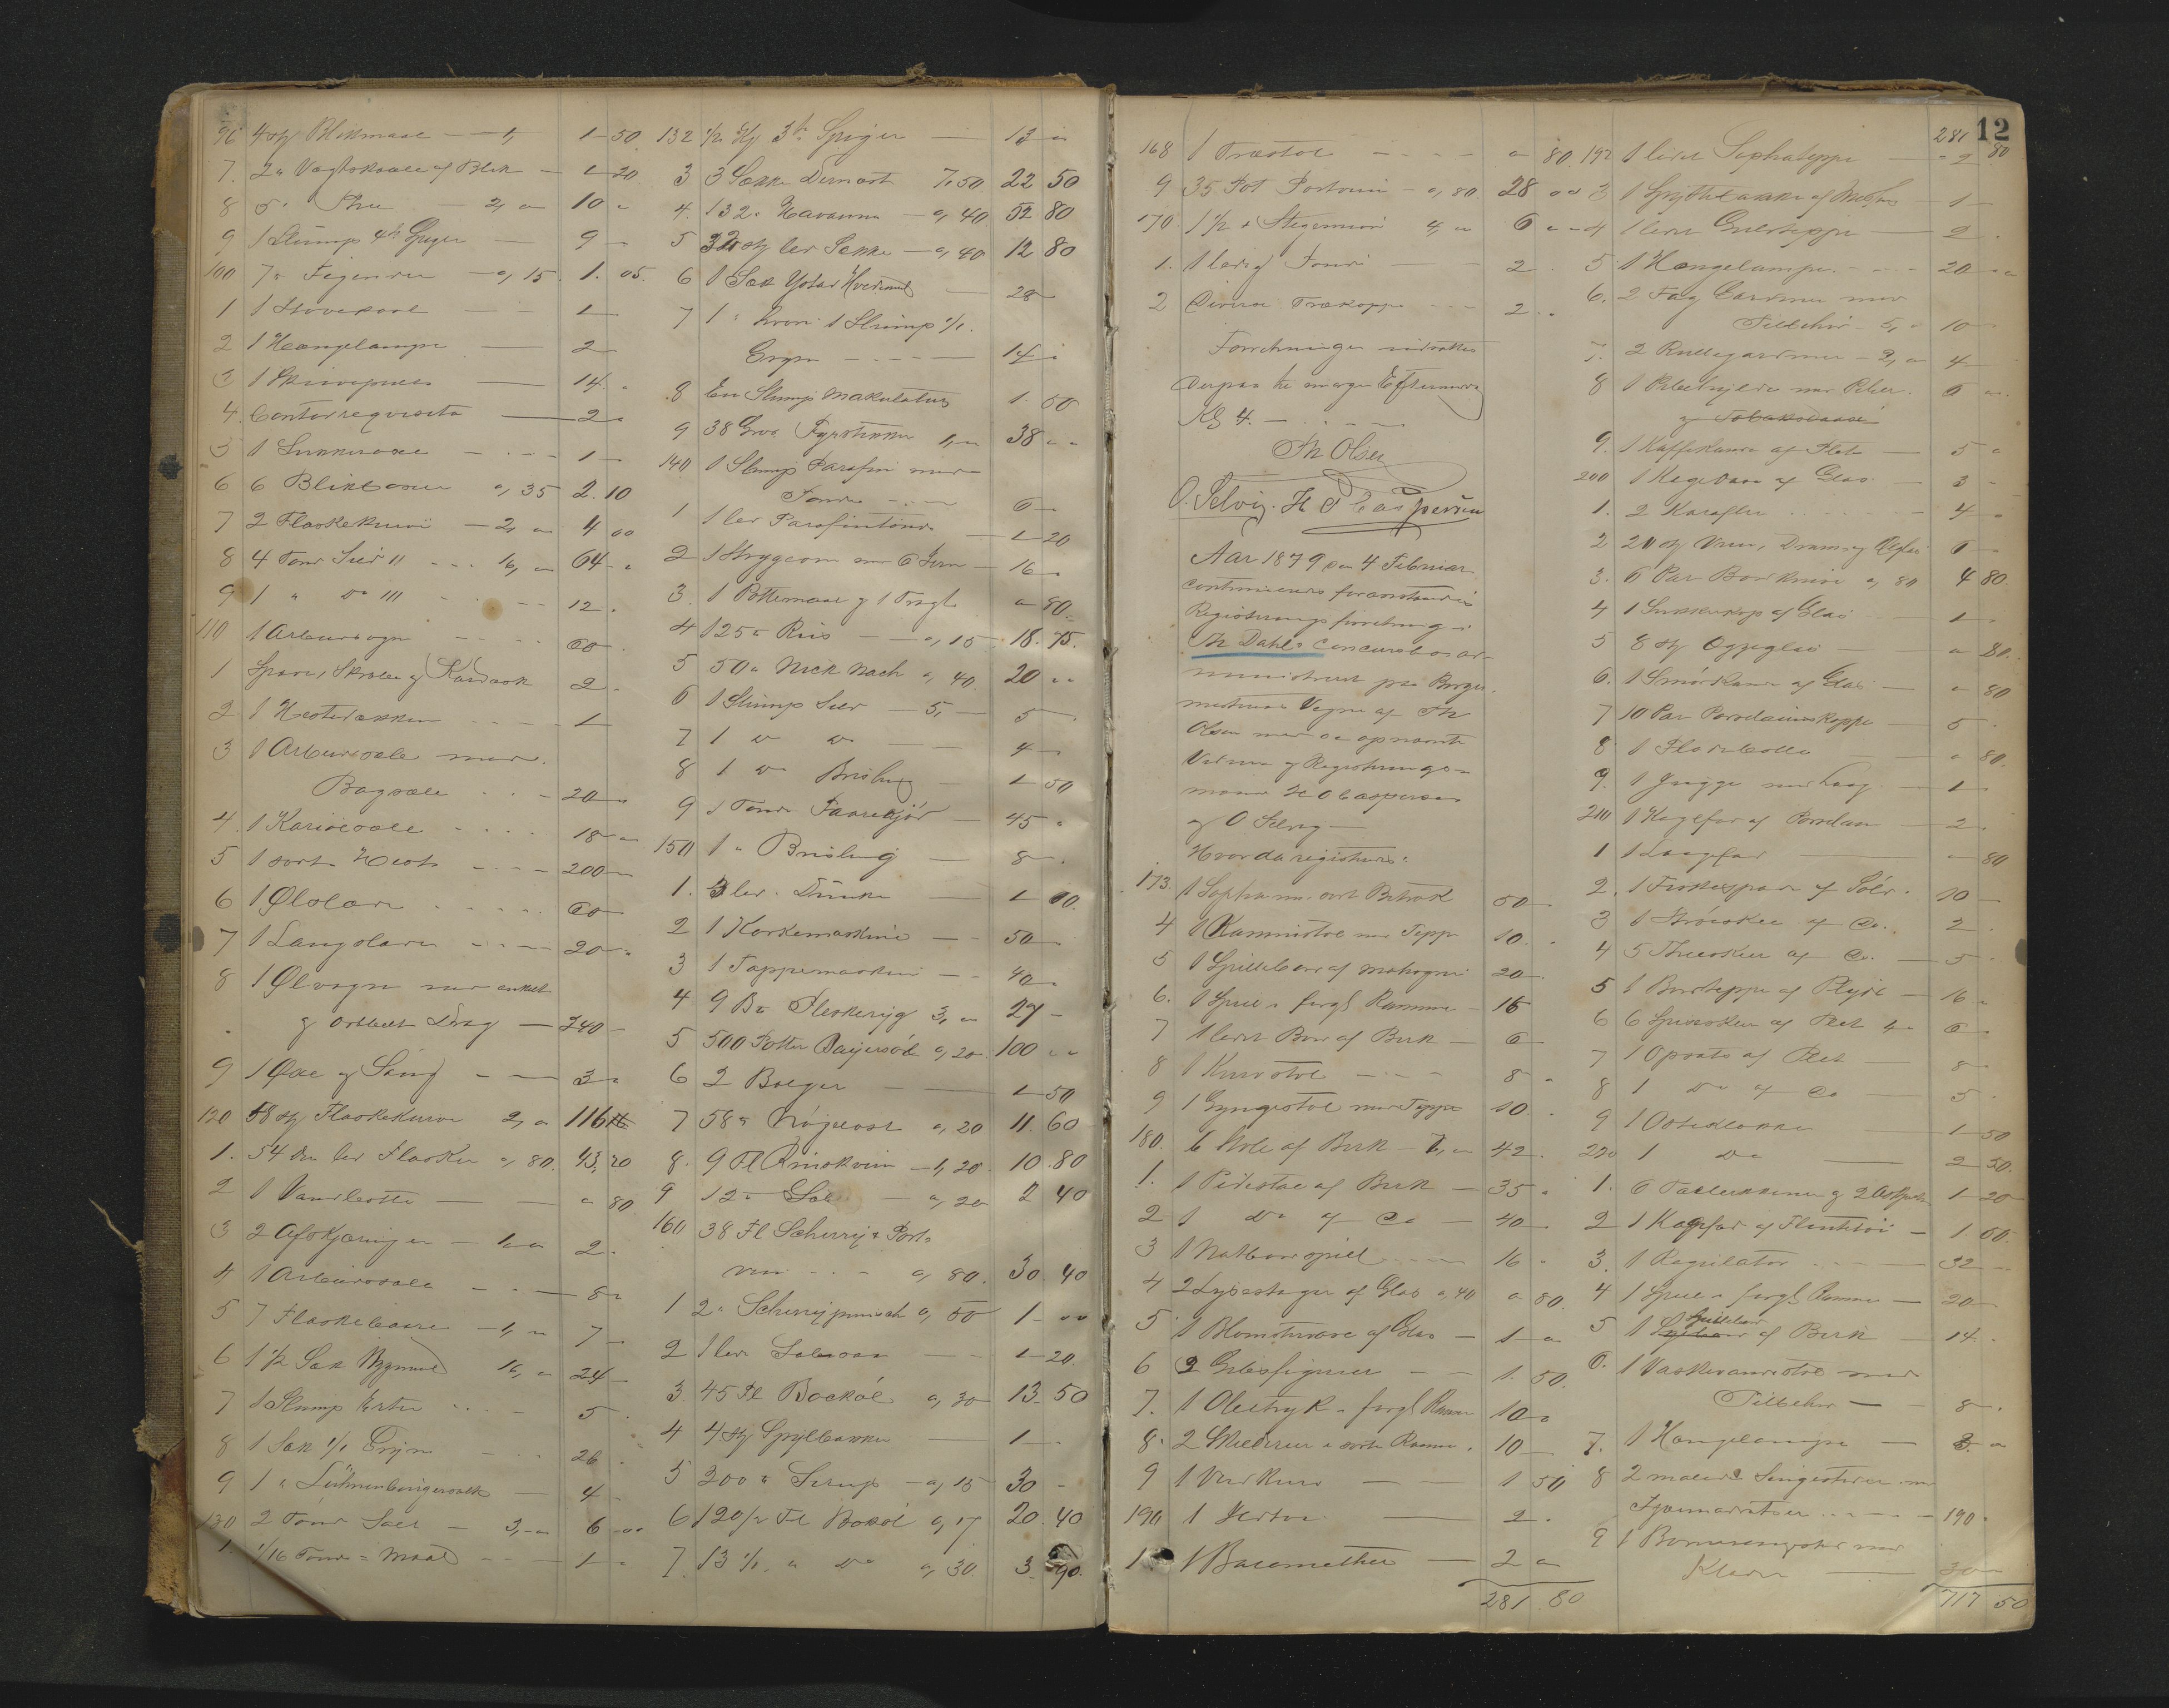 96 4 stk Blikmaal — 1, 1 50
7. 2 " Vægtskaale af Blik — 1 20
8 5 " Thee — 2, " 10 "
9 1 Slump 4" Spiger — 9 "
100 7 " Figener — a, 15. 1. 05.
1 1 — 1
2 1 Hængelampe — 2
3 1 Skruepresse — 14. "
4. Contorreqvisita — 2 "
5 1 — 1
6 6 Blikdaaser a, 35 2. 10
7 2 Flaskekurve — 2, " 4 00
8 4 Tønd Sild 11 16, " 64 "
9 1 " do 111 12.
110 1 Arbeidsvogn 60
1 Spade, Skovle 2.
2 1 Hestedækken 1
3 1 Arbeidssæle med
Bagsæle 20 "
4. 1 Kariolsæle 18 "
5 1 sort Hest 200
6 1 Ølslæde 60
7 1 Langslæde 20 "
8 1 Ølvogn med enkelt
og dobbelt Drag — 240
9 1 Øxe og Saug — 3 "
120 58 stk Flaskekurve 2, " 116
1. 54 Dus led Flasker a, 80. 43, 20
2 1 Vandbøtte — " 80
3 2 — 1, " 2.
4 1 Arbeidssæle — 8 "
5 7 Flaskekasser — 1, " 7 —
6 1 1/2 Sæk Bygmel 16, " 24 —
7 1 Slump Erter 5
8 1 Sæk 1/1 Gryn 26
9 1 " Lüneburgersalt — 4
130 2 Tønd Salt — 3, " 6 "
1. 1/16 Tønde = Maal — 1 "
132 1/2 Kg 3" Spiger — 13 "
3 3 Sække 7,50 22 50
4. 132 " Havanna — a, 40 52 80
5 32 stk led Sække — a, 40 12 80
6 1 Sæk Hvedemel — 28
7 1 " hvori 1 Slump 1/1.
Gryn — 14 "
8 En Slump Makulatur 1. 50
9 38 Gros Fyrstikker 1, " 38 "
140 1 Slump Parafin med
Tønde 6
1 1 led Parafintønde — 1 20
2 1 med 6 — 16
3. 1 Pottemaal og 1 Tragt " 80.
4 125 " Riis — a, 15 18. 75.
5 50 " Nick Nack a, 40 20 "
6 1 Slump Sild — 5, — 5
7 1 do do — 4
8 1 do Brisling — 1 50
9 1 Tønde Faarekjød — 45 "
150 1 " Brisling — 8 "
1. 3 led. Dunke — 1
2 1 Korkemaskine — 50
3 1 Tappemaskine — 40
4 9 Bt 3, " 27 —
5 500 Potter Bayersøl a, 20 100 "
6 2 Bolger — 1 50
7 58 " Nøgleost a, 20 11. 60
8. 9 Fl Rinskvin — 1, 20. 10. 80
9 12 " — a, 20 2 40
160 38 Fl Scherry & Port-
vin a, 80. 30 40
1 2 " Scherrypunsch a, 50 1 — "
2 1 led — 1 20
3. 45 Fl Bockøl a, 30 13. 50
4 4 stk Spytbakker — 1 —
5 200 " Sirup — a, 15 30 —
6 120/2 Fl Bokøl a, 17 20. 40
7 13 1/1 " do a, 30. 3. 90.
12
168 1 Træstol " 80
9 35 Pot Portvin — a, 80 28 "
170 1 1/2 " 4, " 6 "
1. 1 ledig Tønde — 2
2 Diverse Trækopper 2 "
Forretningen udsattes
derpaa til imorgen Eftermiddag
Kl 4. —
Th Olsen
O. Selvig. H O Caspersen
Aar 1879 den 4 Februar
continueredes foranstaaende
Registreringsforretning i
Th Dahls Concursbo ad-
ministreret paa Borger-
mesterens Vegne af Th
Olsen med de opnævnte
Vidner og Registrerings-
mænd H O Caspersen
og O Selvig —
Hvorda registreres:
173. 1 Sopha m. sort Betræk 50
4 1 med Tæppe 10.
5 1 Spillebord af mahogni 20
6. 1 Speil i forgl Ramme — 16
7 1 lidet Bord af Birk — 6
8 1 Kurvstol — 8 "
9 1 Gyngestol med Tæppe 10.
180. 6 Stole af Birk — 7, " 42.
1. 1 Pidestal af Birk — 35 "
2 1 do af do — 40
3 1 Natbordspeil 16 "
4 2 Lysestager af Glas a, 40 " 80
5 1 Blomstervase af Glas — 1 "
6 2 Gibsfigurer — 1. 50
7. 1 Olietryk i forgl Ramme 10 "
8. 2 Skilderier i sorte Rammer. 10
9 1 Vedkurv — 1 50
190 1 — 2.
1 1 Barometter — 2 "
281. 80
281 80
192 1 lidet Sophateppe — 2
3 1 Spyttebakke af Messing — 1 —
4 1 lidet Gulvteppe — 2
5 1 Hængelampe — 20 "
6. 2 Fag Gardiner med
Tilbehør — 5, " 10
7. 2 Rullegardiner — 2, " 4
8 1 Pibehylde med Piber. 6 "
og Tobaksdaase
9. 1 Kaffekande af Plet — 5 "
200 1 Kagedaase af Glas 3 —
1. 2 Karafler 4 "
2 20 stk Vin, Dram og 6
3. 6 Par Bordknive a, 80 4 80
4 1 Sukkerkop af Glas 1 —
5 8 stk Æggeglas — " 80.
6. 1 Smørkande af Glas — " 80
7 10 Par Porcelainskopper — 5
8 1 Flødebolle — " 80.
9. 1 Jugge med Laag — 1
210 1 Kagefad af Porcelain — 2.
1 1 — " 80
2. 1 Fiskespade af Sølv. 10 —
3 1 Strøskee af do. 2
4 5 Theeskeer af do. — 5
5 1 Bordteppe af Plyds — 16 "
6 6 Spiseskeer af Plet 1 " 6
7 1 Opsats af Plet — 8
8 1 do af do — 5
9 1 Osteklokke — 1 50
220 1 do — 2 50.
1. 6 Tallerkener og 2 1 20
2 1 Kagefad af Flinttøi — 1 60
3. 1 Regulator 32 —
4 1 Speil i forgl Ramme — 20 —
Spillebord
5 1 af Birk — 14.
6. 1 Vaskevandstol med
Tilbehør — 8.
7. 1 Hængelampe — 3. "
8 2 malede Sengesteder m
Fjærmadratser — 190.
9 1 Barneseng med
Klæder — 30
717 50